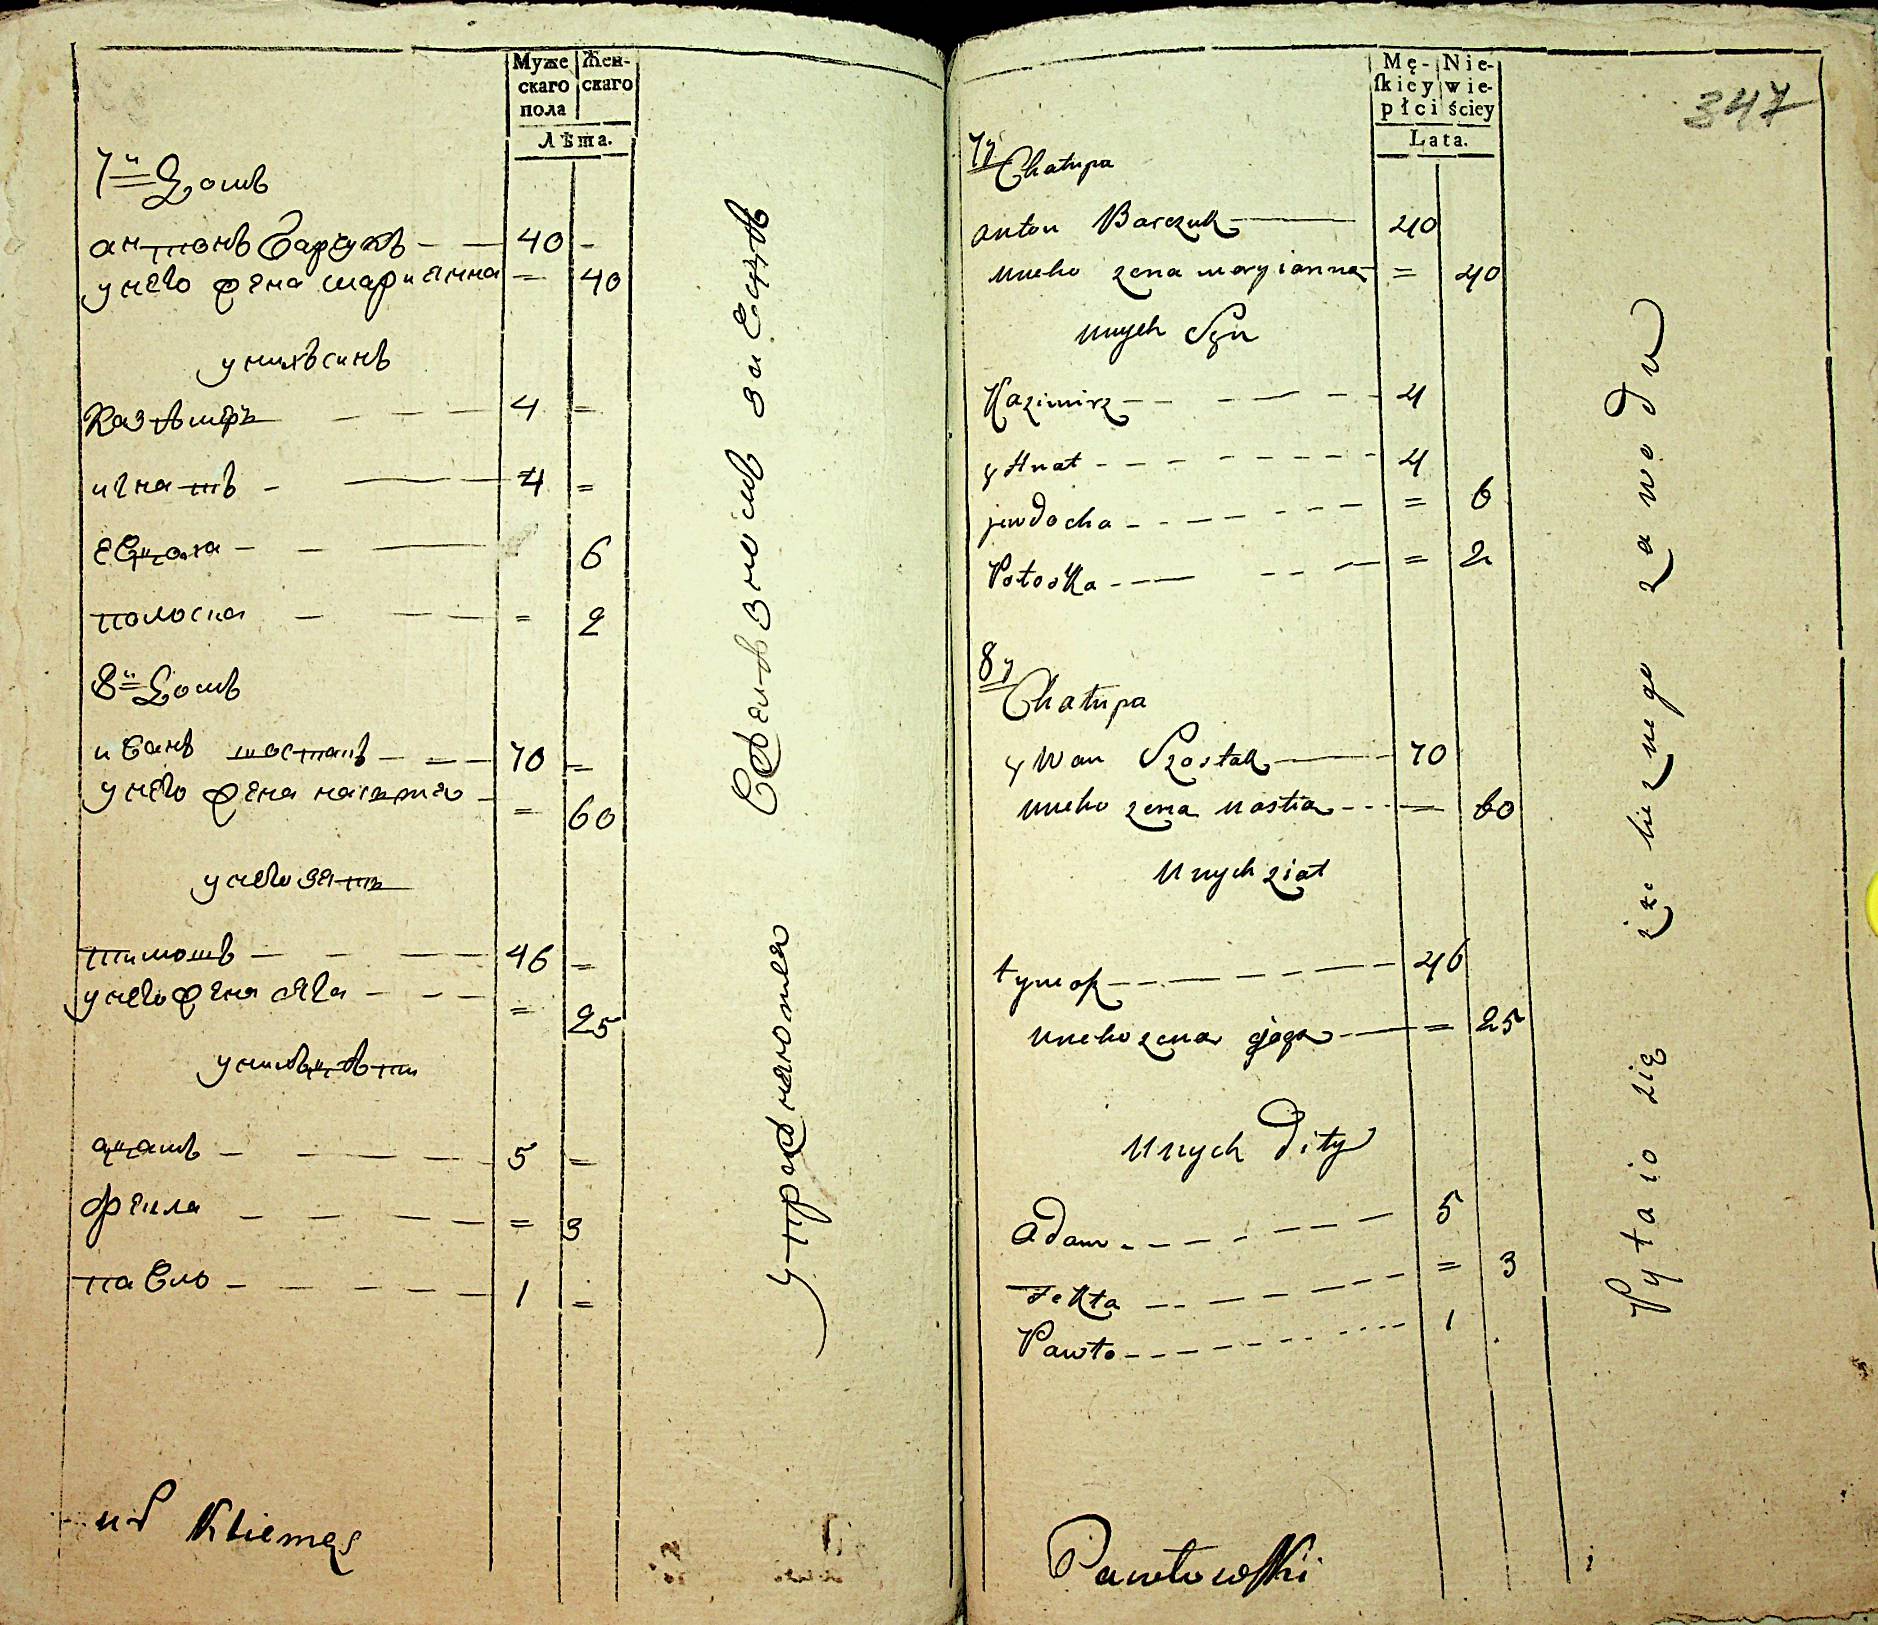 Муже
скаго
пола
Жен-
скаго
Лѣта.
7й Домъ
антонъ Барчукъ — — 40 -
у него жена мариянна = 40
у нихъ синъ
Казѣмеръ — — — 4 =
игнатъ - — 4 =
Евдоха — — — 6
полоска — — = 2
8й Домъ
иванъ шостакъ — — — 70 =
у него жена настя — = 60
у него зять
тимошъ — — — 46 =
у него жена яга — — — = 25
у нихъ дѣти
адамъ — — — — 5 =
фекла — — — — = 3
павло — — — — 1 =
упражняются
за Ездѣ
Kliemes
Mę-
ſkiey
płci
Nie-
wie-
ściey
Lata.
347
7y
Chałupa
anton Barczuk — 40
uneho zena maryianna = 40
unych Syn
Kazimirz — — — 4
yHnat - - - - - 4
jewdocha - - - - - = 6
Połoska - - - - - = 2
8y
Chałupa
yWan Szostak — 70
uneho zena nastia - - - = 60
Unych ziat
tymosz - - - - - 46
uneho zena jaga — = 25
Unych Dity
adam - - - - - 5
Fekła - - - - - = 3
Pawło - - - - - 1
Pytaio się
zawodu
Pawłowſki